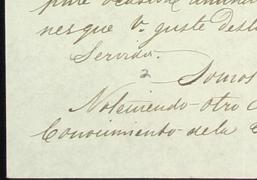 para ocasion
nes que V. guste
Servido.
Somos
No teniendo otro
Conocimiento de la